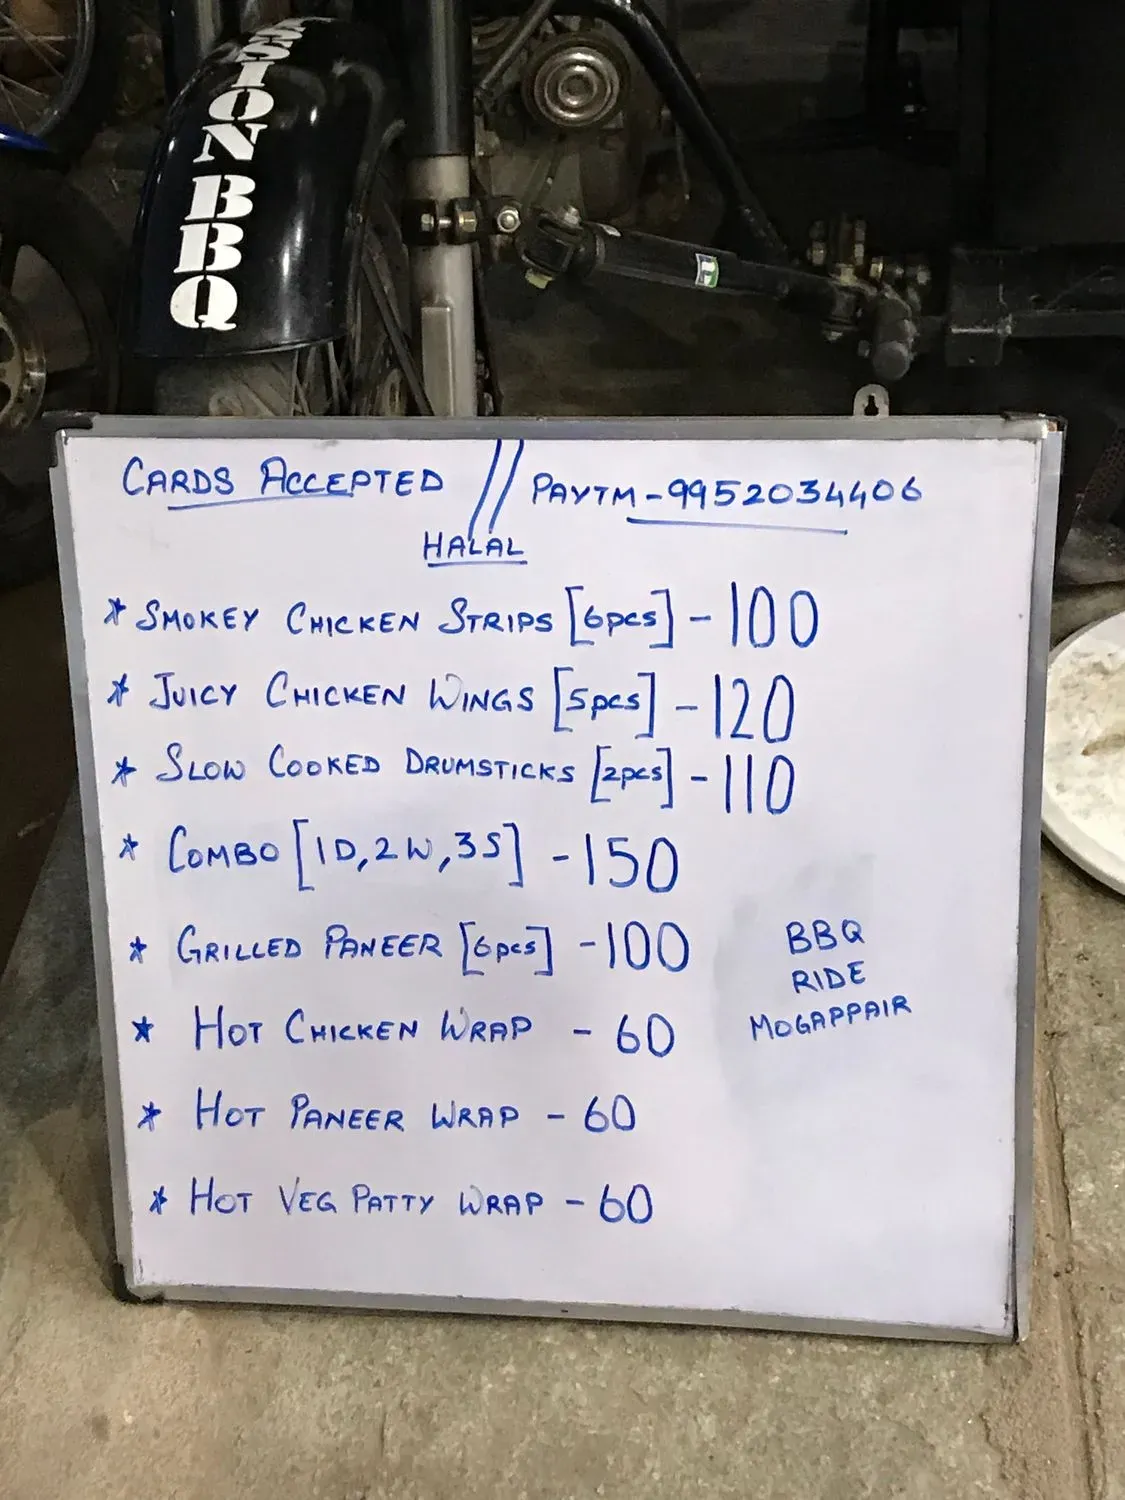 SION BBQ
CARDS ACCEPTED // PAYTM - 9952034406
HALAL
* SMOKEY CHICKEN STRIPS [6pcs] - 100
* JUICY CHICKEN WINGS [5pcs] - 120
* SLOW COOKED DRUMSTICKS [2pcs] - 110
* COMBO [1D, 2W, 3S] - 150
* GRILLED PANEER [6pcs] - 100
* HOT CHICKEN WRAP - 60
* HOT PANEER WRAP - 60
* HOT VEG PATTY WRAP - 60
BBQ
RIDE
MOGAPPAIR